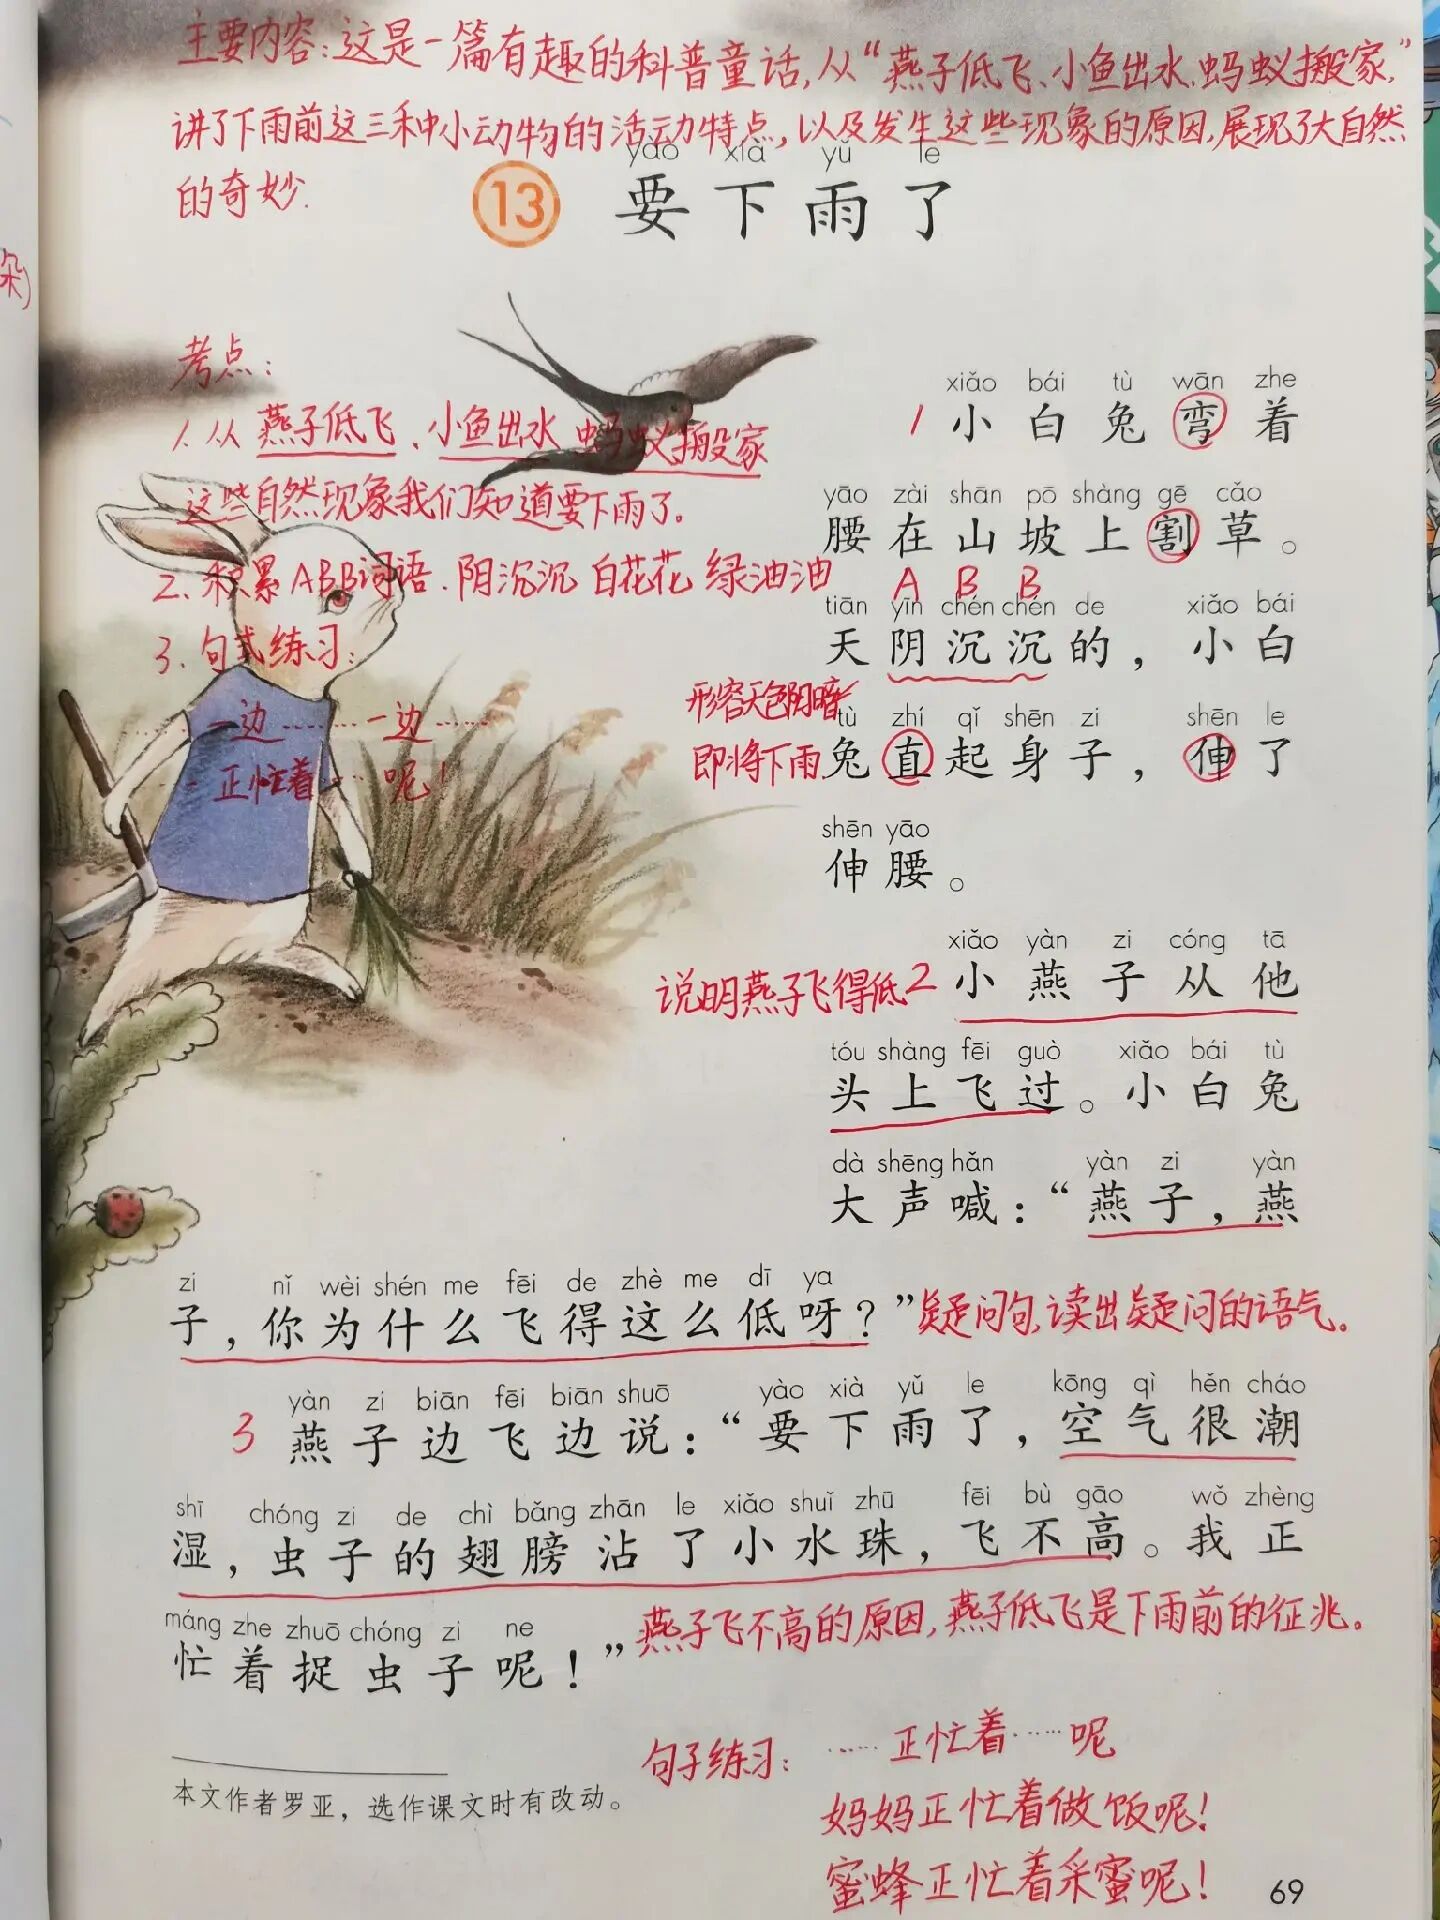 主要内容:这是一篇有趣的科普童话,从“燕子低飞、小鱼出水、蚂蚁搬家,”
讲了下雨前这三种小动物的活动特点,以及发生这些现象的原因,展现了大自然
的奇妙.
yào xià yǔ le
13 要下雨了
考点:
1.从燕子低飞、小鱼出水 蚂蚁搬家
这些自然现象我们知道要下雨了.
2.积累ABB词语.阴沉沉 白花花 绿油油
3.句式练习:
一边……一边……
…正忙着……呢!
xiǎo bái tù wān zhe
1 小白兔弯着
yāo zài shān pō shàng gē cǎo
腰在山坡上割草。
A B B
tiān yīn chén chén de xiǎo bái
天阴沉沉的,小白
形容天色阴暗
即将下雨
tù zhí qǐ shēn zi shēn le
兔直起身子,伸了
shēn yāo
伸腰。
xiǎo yàn zi cóng tā
说明燕子飞得低 2 小燕子从他
tóu shàng fēi guò xiǎo bái tù
头上飞过。小白兔
dà shēng hǎn yàn zi yàn
大声喊:“燕子,燕
zi nǐ wèi shén me fēi de zhè me dī ya
子,你为什么飞得这么低呀?”疑问句,读出疑问的语气.
yàn zi biān fēi biān shuō yào xià yǔ le kōng qì hěn cháo
3 燕子边飞边说:“要下雨了,空气很潮
shī chóng zi de chì bǎng zhān le xiǎo shuǐ zhū fēi bù gāo wǒ zhèng
湿,虫子的翅膀沾了小水珠,飞不高。我正
máng zhe zhuō chóng zi ne
忙着捉虫子呢!”燕子飞不高的原因,燕子低飞是下雨前的征兆.
句子练习: ……正忙着……呢
本文作者罗亚,选作课文时有改动。
妈妈正忙着做饭呢!
蜜蜂正忙着采蜜呢!
69